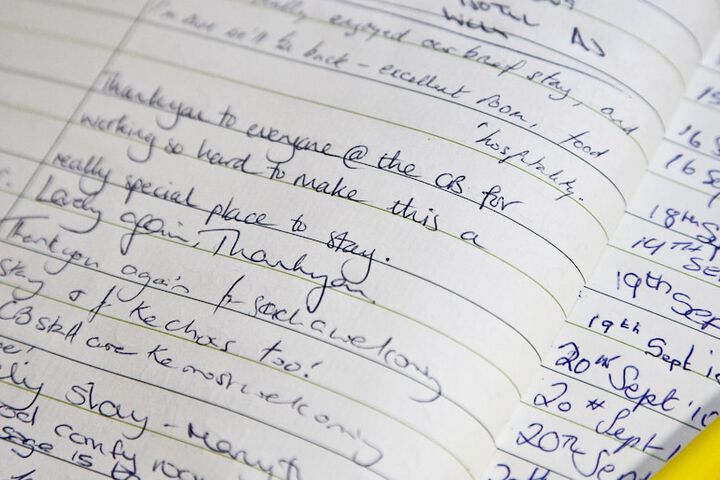 HOTEL AS
well
really enjoyed our brief stay, and
I'm sure we'll be back - excellent room, food
"hospitality.
Thankyou to everyone @ the CB for
working so hard to make this a
really special place to stay.
Lovely again, Thankyou.
Thankyou again for such a welcoming
stay & to the chefs too!
CB staff are the most welcoming
stay - Many th
comfy room
16 S
16 S
18th S
14TH
SE
19th Sep
19th Sept 1
20th Sept '1
20th Sept 1
20th Sep